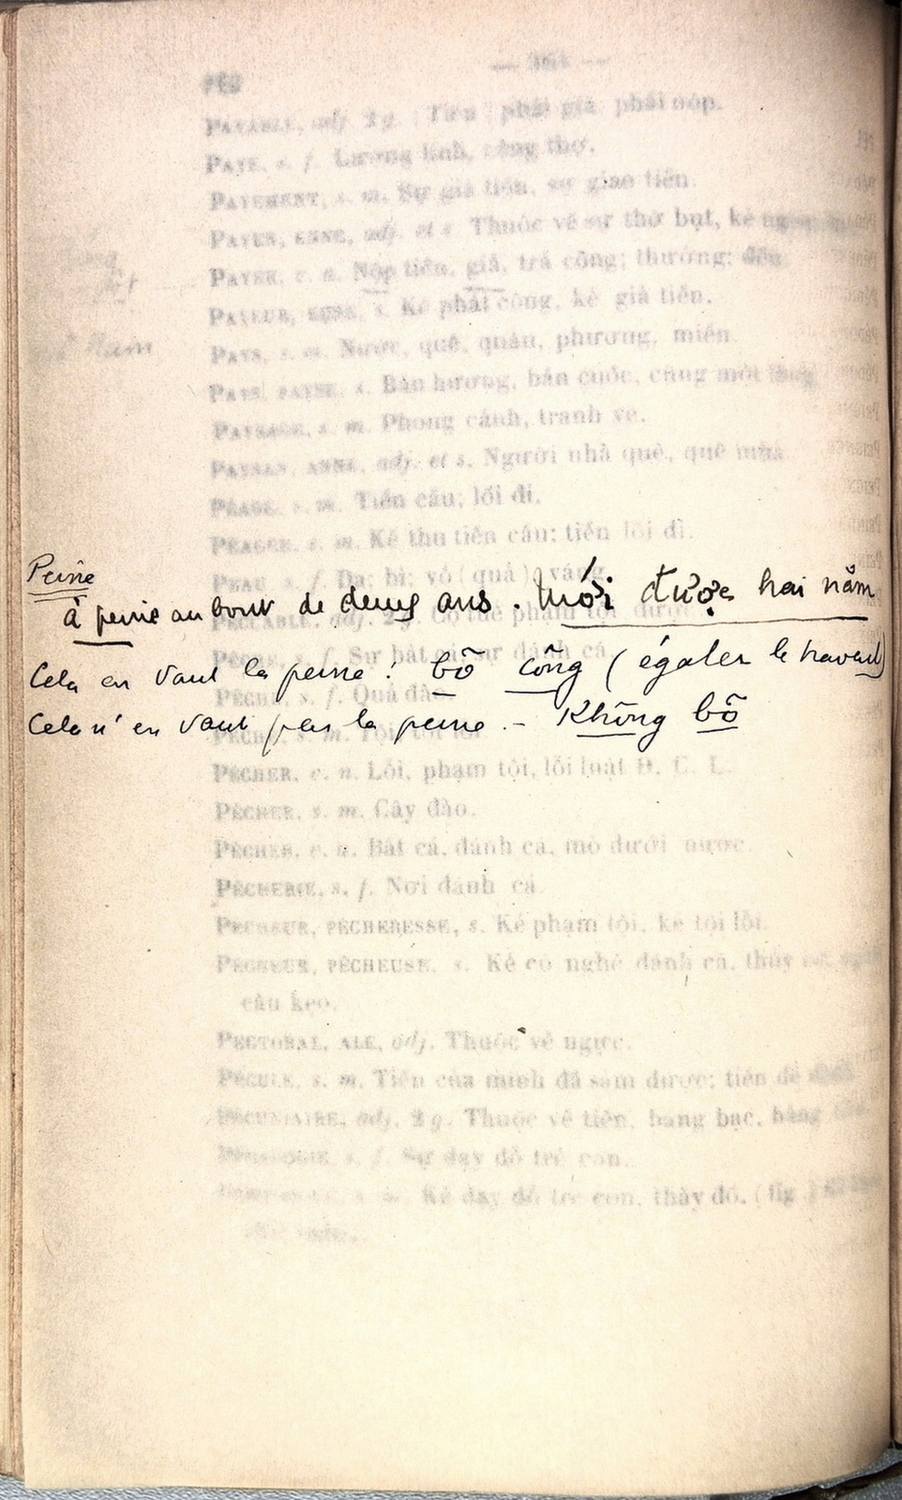 PAYABLE, adj. 2 g. phải giả, phải nộp.
PAYE, s. f. Lương lính, công thợ.
PAYEMENT, s. m. Sự giả tiền, sự giao tiền.
PAYEN, ENNE, adj. et s. Thuộc về sự thờ bụt, kẻ
PAYER, v. a. Nộp tiền, giả, trả công; thưởng; đền
PAYEUR, EUSE, s. Kẻ phát công, kẻ giả tiền.
PAYS, s. m. Nước, quê, quán, phương, miền.
PAYS, PAYSE, s. Bản hương, bản cuốc, cũng một
PAYSAGE, s. m. Phong cảnh, tranh vẽ.
PAYSAN, ANNE, adj. et s. Người nhà quê, quê mùa.
PÉAGE, s. m. Tiền cầu; lối đi.
PÉAGER, s. m. Kẻ thu tiền cầu; tiền lối đi.
Peine
PEAU, s. f. Da; bì; vỏ (quả); váng.
à peine au bout de deux ans. Mới được hai năm
PECCABLE, adj. 2 g. Có thể phạm tội được.
PÊCHE, s. f. Sự bắt cá, sự đánh cá.
Cela en vaut la peine! bõ công (égaler le travail)
PÊCHE, s. f. Quả đào.
Cela n'en vaut pas la peine. - Không bõ
PÉCHER, v. n. Lỗi, phạm tội, lỗi luật Đ. C. L.
PÊCHER, s. m. Cây đào.
PÊCHER, v. a. Bắt cá, đánh cá, mò dưới nước.
PÊCHERIE, s. f. Nơi đánh cá.
PÉCHEUR, PÉCHERESSE, s. Kẻ phạm tội, kẻ tội lỗi.
PÊCHEUR, PÊCHEUSE, s. Kẻ có nghề đánh cá,
câu kéo.
PECTORAL, ALE, adj. Thuộc về ngực.
PÉCULE, s. m. Tiền của mình đã sắm được; tiền để
PÉCUNIAIRE, adj. 2 g. Thuộc về tiền, bằng bạc, bằng
PÉDAGOGIE, s. f. Sự dạy dỗ trẻ con.
Kẻ dạy dỗ trẻ con, thày đồ. (fig.)